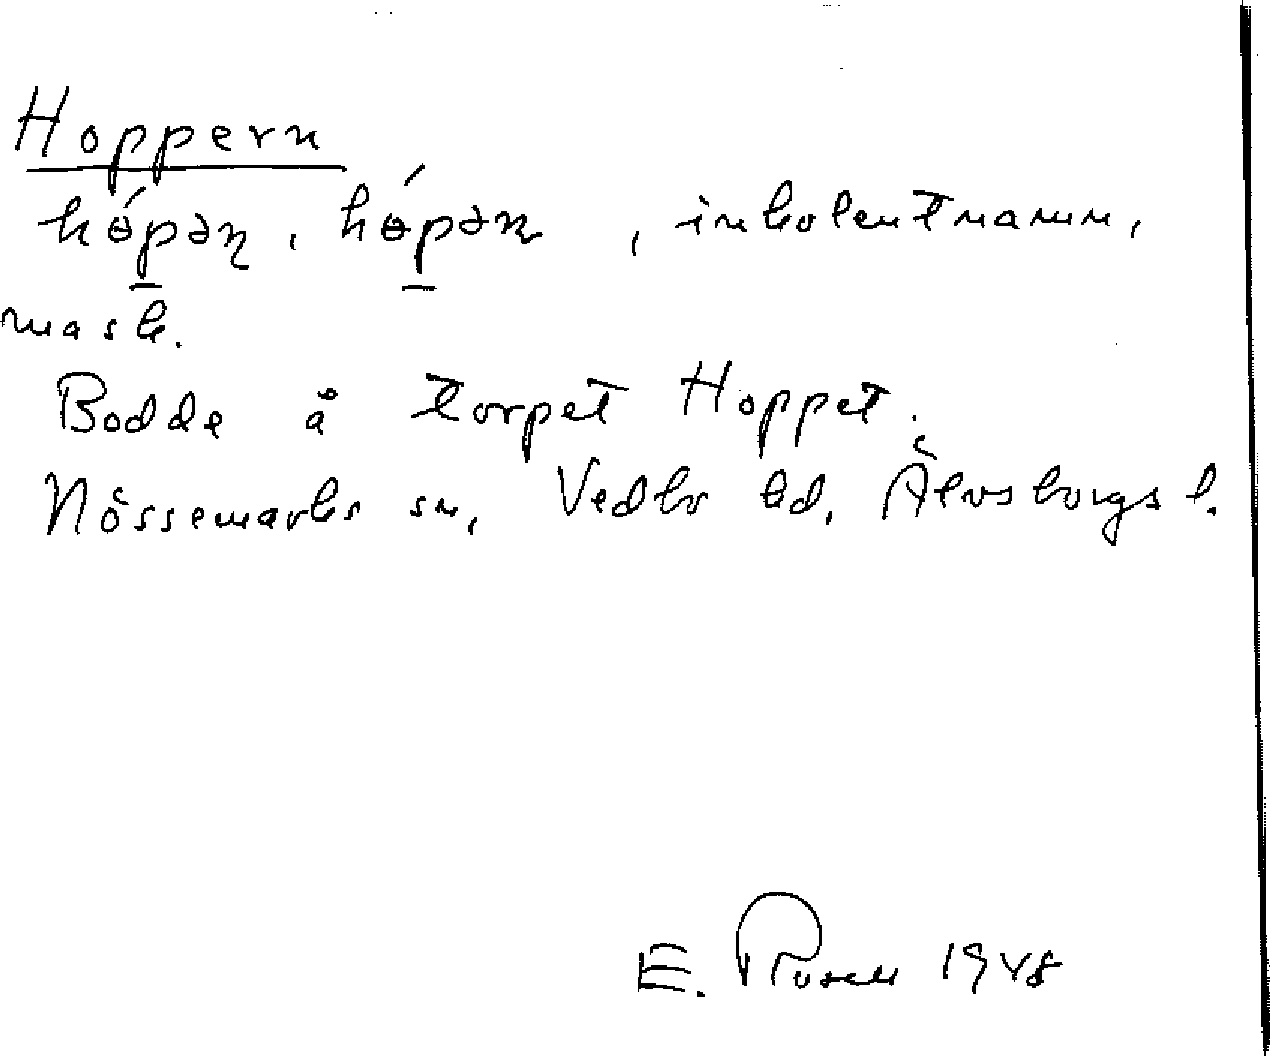 Hoppern
hɵ́pəɳ, hɵ́pən, inkolentnamn,
mask.
Bodde å torpet Hoppet.
Nössemarks sn, Vedbo hd, Älvsborgs l.
E. Rosell 1948